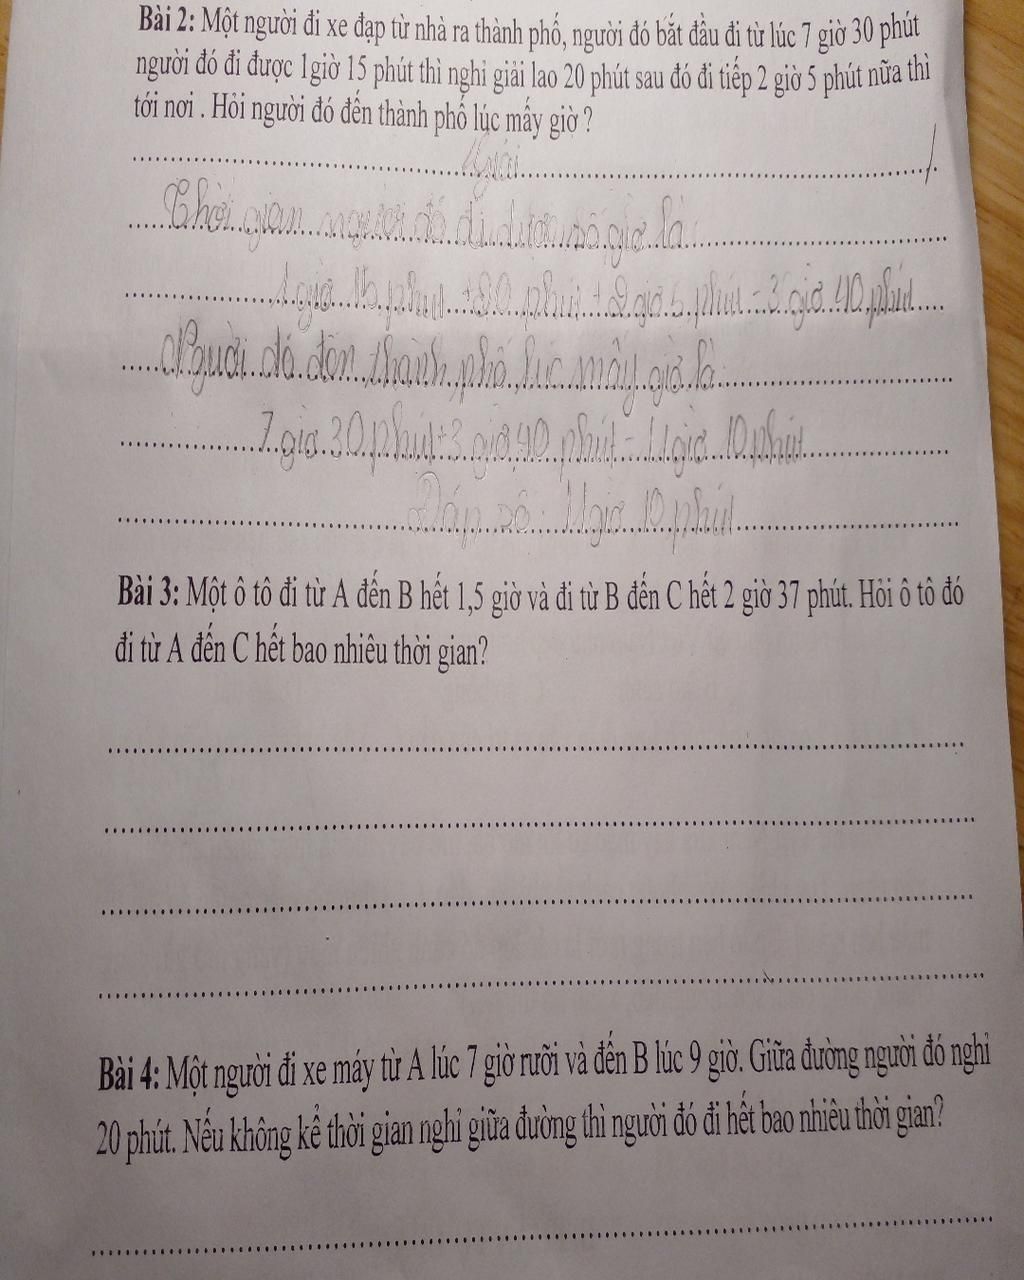 Bài 2: Một người đi xe đạp từ nhà ra thành phố, người đó bắt đầu đi từ lúc 7 giờ 30 phút
người đó đi được 1giờ 15 phút thì nghỉ giải lao 20 phút sau đó đi tiếp 2 giờ 5 phút nữa thì
tới nơi . Hỏi người đó đến thành phố lúc mấy giờ ?
Giải
Thời gian người đó đi được số giờ là
1 giờ 15 phút + 20 phút + 2 giờ 5 phút = 3 giờ 40 phút
Người đó đến thành phố lúc mấy giờ là
7 giờ 30 phút + 3 giờ 40 phút = 11 giờ 10 phút
Đáp số : 11 giờ 10 phút
Bài 3: Một ô tô đi từ A đến B hết 1,5 giờ và đi từ B đến C hết 2 giờ 37 phút. Hỏi ô tô đó
đi từ A đến C hết bao nhiêu thời gian?
Bài 4: Một người đi xe máy từ A lúc 7 giờ rưỡi và đến B lúc 9 giờ. Giữa đường người đó nghỉ
20 phút. Nếu không kể thời gian nghỉ giữa đường thì người đó đi hết bao nhiêu thời gian?